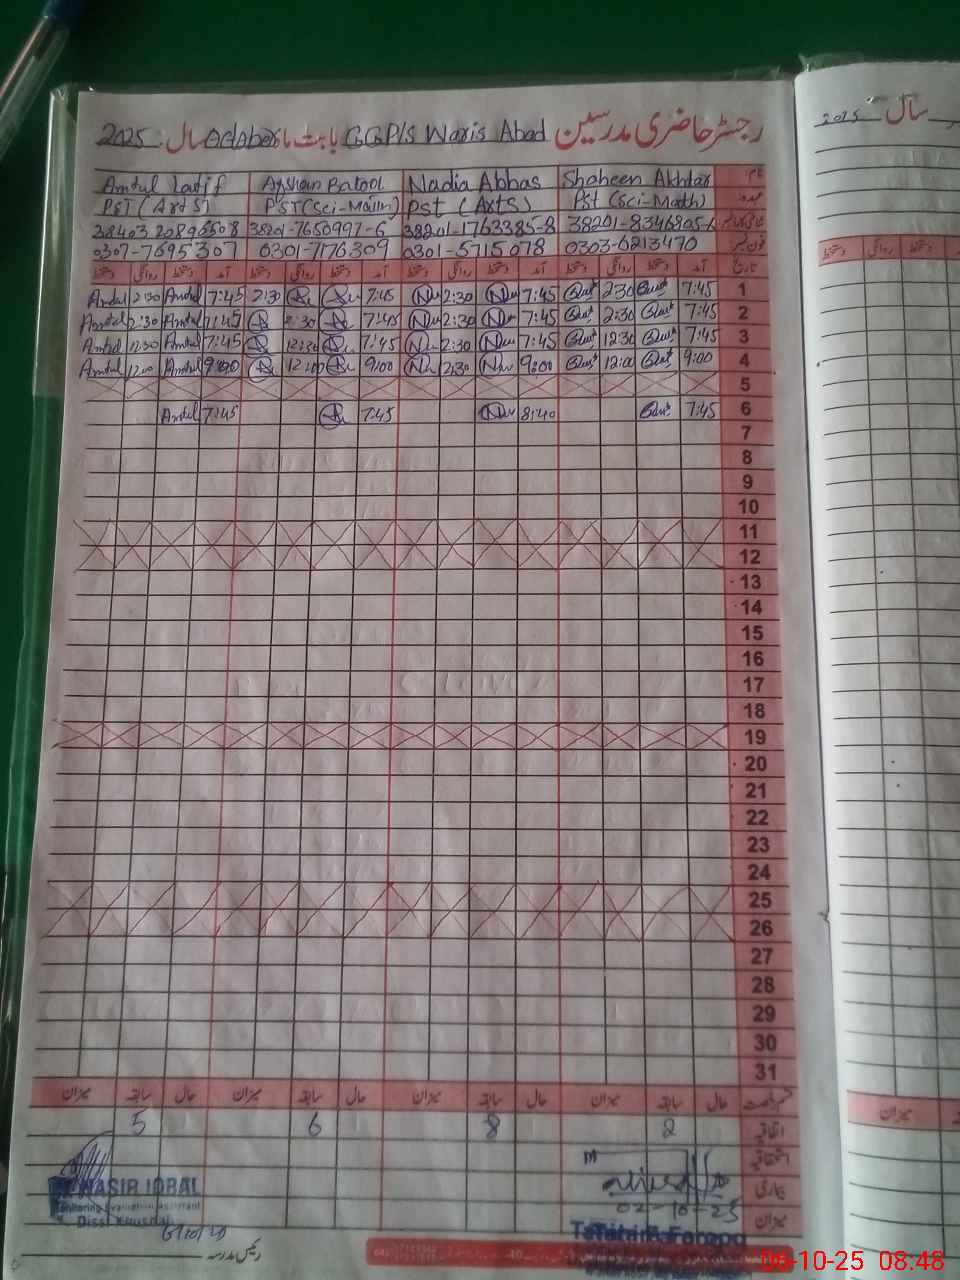 رجسٹر حاضری مدرسین GGP/S Waris Abad بابت ماہ October سال 2025
سال 2025
نام Shaheen Akhtar Nadia Abbas Afshan Batool Amtul Latif
عہدہ Pst (Sci-Math) Pst (Arts) PST (Sci-Math) PST (Arts)
38201-1763385-8 38201-7650997-6
فون نمبر 0303-6213470 0301-5715078 0301-7176309 0307-7695307
تاریخ آمد دستخط روانگی دستخط آمد دستخط روانگی دستخط آمد دستخط روانگی دستخط آمد دستخط روانگی دستخط
1 7:45 2:30 7:45 2:30 7:45 2:30 7:45 Amtul 2:30 Amtul
2 7:45 2:30 7:45 2:30 7:45 2:30 7:45 Amtul 2:30 Amtul
3 7:45 12:30 7:45 2:30 7:45 12:30 7:45 Amtul 12:30 Amtul
4 9:00 12:00 9:00 2:30 9:00 12:00 9:00 Amtul 12:00 Amtul
5
6 7:45 8:40 7:45 7:45 Amtul
7
8
9
10
11
12
13
14
15
16
17
18
19
20
21
22
23
24
25
26
27
28
29
30
31
قسم رخصت حال سابقہ میزان حال سابقہ میزان حال سابقہ میزان حال سابقہ میزان
میزان
اتفاقیہ 2 8 6 5
استحقاقیہ
بیماری
NASIR IQBAL
میزان
02-10-25
Monitoring Evaluation Assistant
Distt Khushab
6/10/25
Tahira Farooq
رئیس مدرسہ
06-10-25 08:48